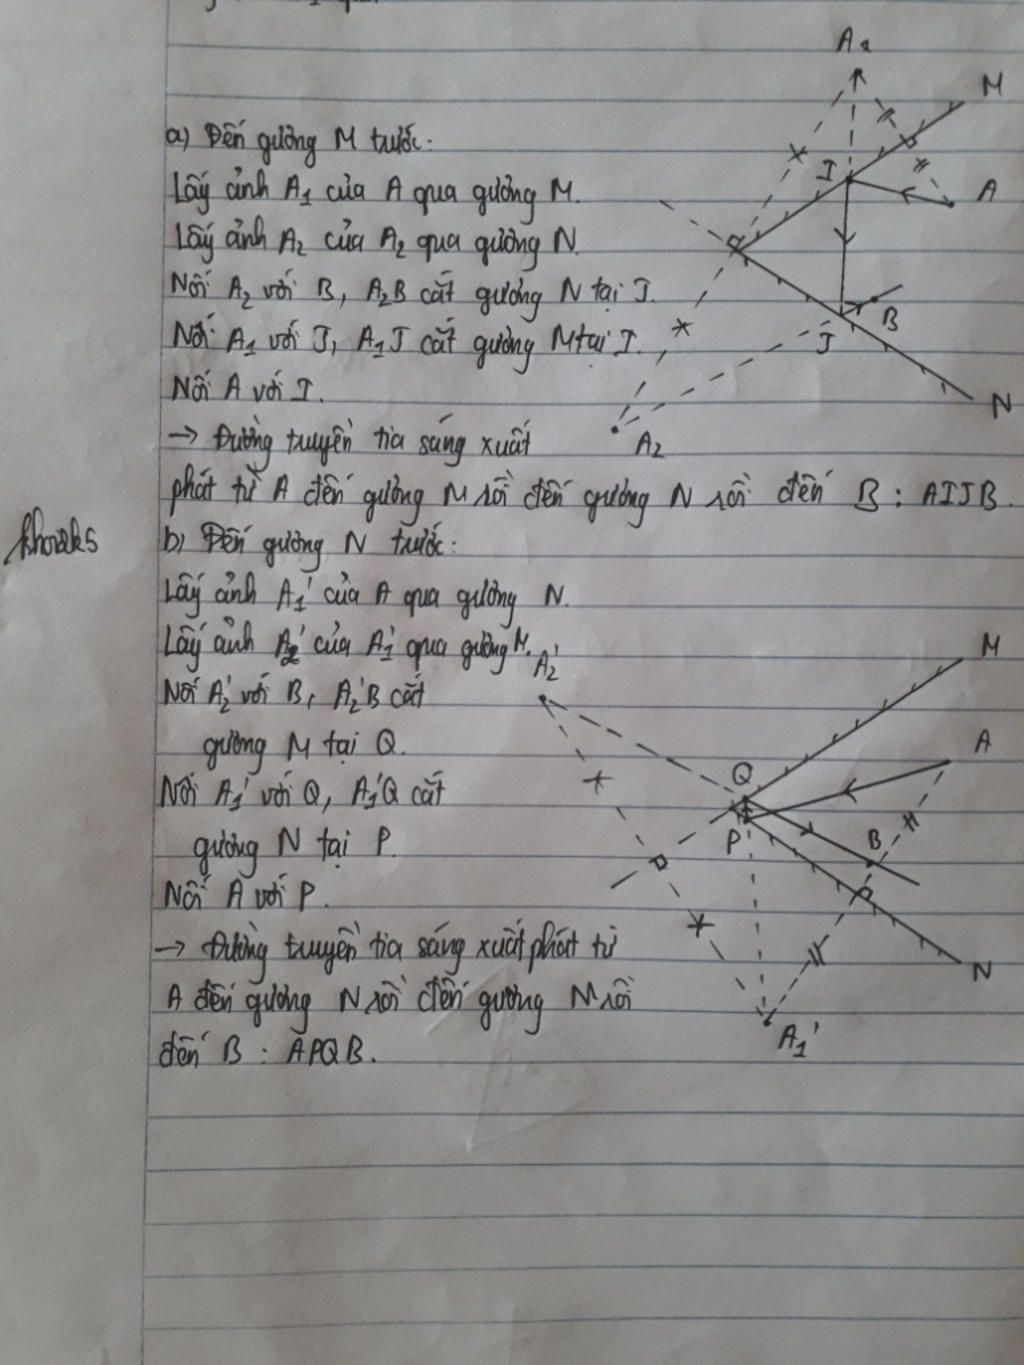 a) Đến gương M trước:
Lấy ảnh A1 của A qua gương M.
Lấy ảnh A2 của A2 qua gương N.
Nối A2 với B, A2B cắt gương N tại J.
Nối A1 với J, A1J cắt gương M tại I.
Nối A với I.
→ Đường truyền tia sáng xuất
phát từ A đến gương M rồi đến gương N rồi đến B : AIJB.
b) Đến gương N trước:
Lấy ảnh A1' của A qua gương N.
Lấy ảnh A2' của A1' qua gương M.
Nối A2' với B, A2'B cắt
gương M tại Q.
Nối A1' với Q, A1'Q cắt
gương N tại P.
Nối A với P.
→ Đường truyền tia sáng xuất phát từ
A đến gương N rồi đến gương M rồi
đến B : APQB.
M
I
A
B
J
N
A2
A2'
M
A
Q
P
B
N
A1'